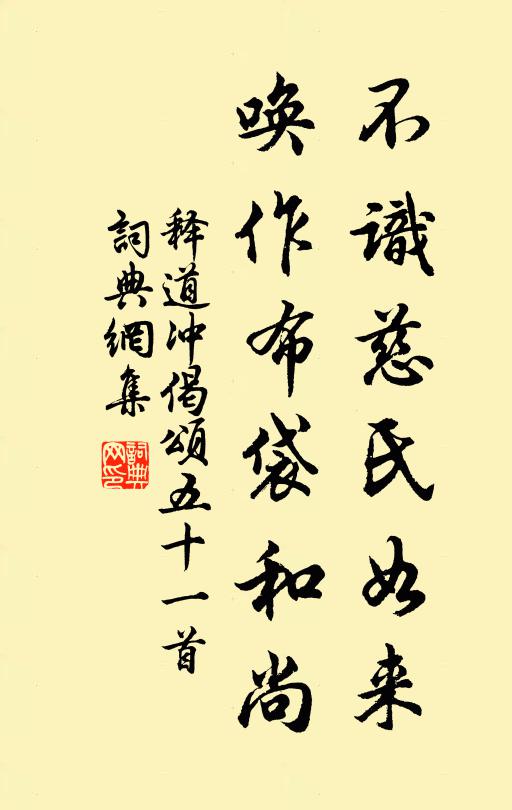 不識慈氏如来
唤作布袋和尚
释道冲偈頌五十一首
詞典網集
詞典網印